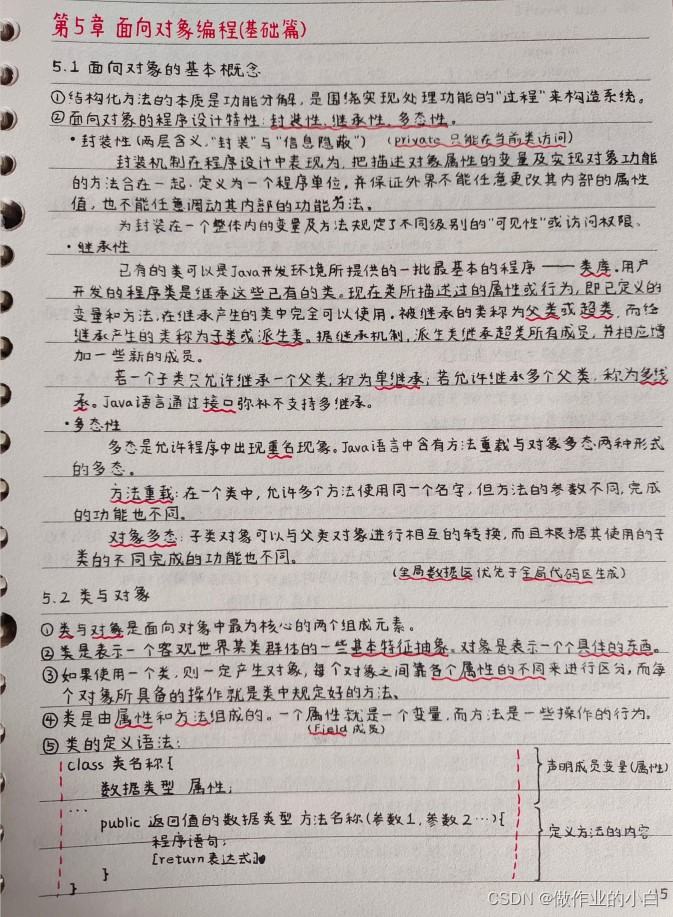 第5章 面向对象编程(基础篇)
5.1 面向对象的基本概念
①结构化方法的本质是功能分解，是围绕实现处理功能的"过程"来构造系统。
②面向对象的程序设计特性：封装性、继承性、多态性。
·封装性(两层含义，"封装"与"信息隐蔽") (private 只能在当前类访问)
封装机制在程序设计中表现为，把描述对象属性的变量及实现对象功能
的方法合在一起，定义为一个程序单位，并保证外界不能任意更改其内部的属性
值，也不能任意调动其内部的功能方法。
为封装在一个整体内的变量及方法规定了不同级别的"可见性"或访问权限。
·继承性
已有的类可以是Java开发环境所提供的一批最基本的程序——类库。用户
开发的程序类是继承这些已有的类。现在类所描述过的属性或行为，即已定义的
变量和方法，在继承产生的类中完全可以使用。被继承的类称为父类或超类，而经
继承产生的类称为子类或派生类。据继承机制，派生类继承超类所有成员，并相应增
加一些新的成员。
若一个子类只允许继承一个父类，称为单继承；若允许继承多个父类，称为多继
承。Java语言通过接口弥补不支持多继承。
·多态性
多态是允许程序中出现重名现象。Java语言中含有方法重载与对象多态两种形式
的多态。
方法重载：在一个类中，允许多个方法使用同一个名字，但方法的参数不同，完成
的功能也不同。
对象多态：子类对象可以与父类对象进行相互的转换，而且根据其使用的子
类的不同完成的功能也不同。
(全局数据区优先于全局代码区生成)
5.2 类与对象
①类与对象是面向对象中最为核心的两个组成元素。
②类是表示一个客观世界某类群体的一些基本特征抽象。对象是表示一个个具体的东西。
③如果使用一个类，则一定产生对象，每个对象之间靠各个属性的不同来进行区分，而每
个对象所具备的操作就是类中规定好的方法。
④类是由属性和方法组成的。一个属性就是一个变量，而方法是一些操作的行为。
(Field 成员)
⑤类的定义语法：
class 类名称{
数据类型 属性；
声明成员变量(属性)
...
public 返回值的数据类型 方法名称(参数1，参数2…){
程序语句；
定义方法的内容
[return 表达式]
}
}
CSDN @做作业的小白
15